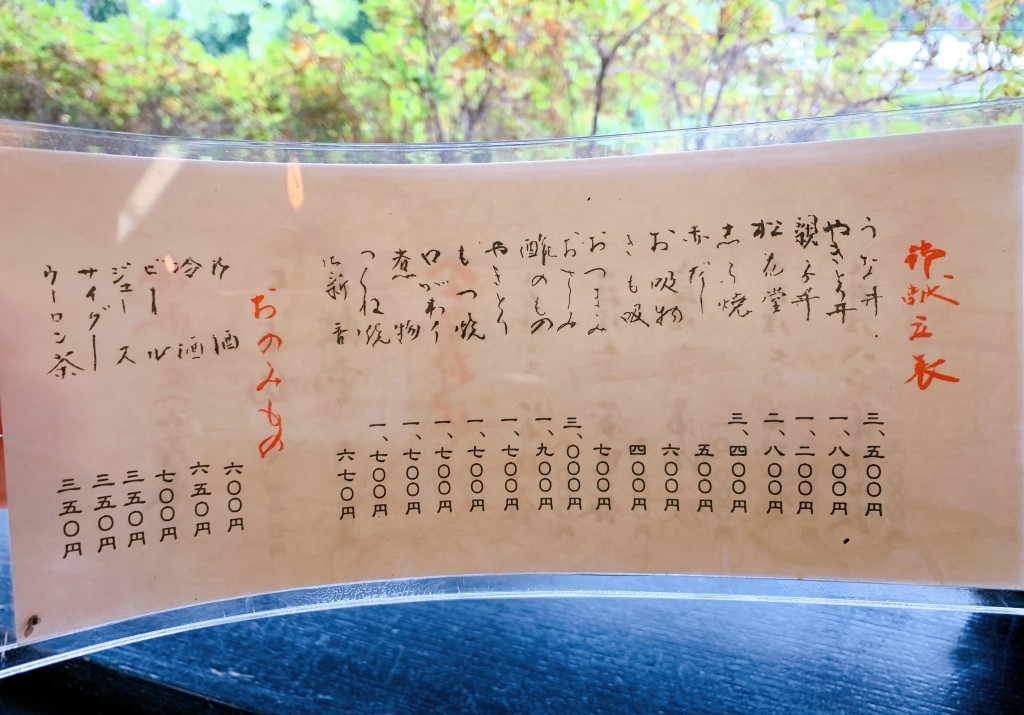 御献立表
うな丼 三、五〇〇円
やきとり丼 一、八〇〇円
親子丼 一、二〇〇円
松花堂 二、八〇〇円
志ら焼 三、四〇〇円
赤だし 五〇〇円
お吸物 六〇〇円
きも吸 四〇〇円
おつまみ 七〇〇円
おさしみ 三、〇〇〇円
酢のもの 一、九〇〇円
やきとり 一、七〇〇円
もつ焼 一、七〇〇円
口がわり 一、七〇〇円
煮物 一、七〇〇円
つくね焼 一、七〇〇円
御新香 六七〇円
おのみもの
お酒 六〇〇円
冷酒 六五〇円
ビール 七〇〇円
ジュース 三五〇円
サイダー 三五〇円
ウーロン茶 三五〇円